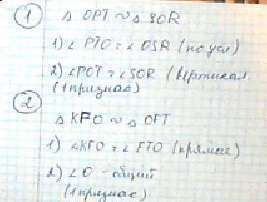 1
△ OPT ∾ △ SOR
1) ∠ PTO = ∠ OSR (по усл)
2) ∠POT = ∠SOR (Вертикал.
(1 признак)
2
△ KFO ∾ △ OFT
1) ∠KFO = ∠FTO (прямые)
2) ∠O - общий
(1 признак)